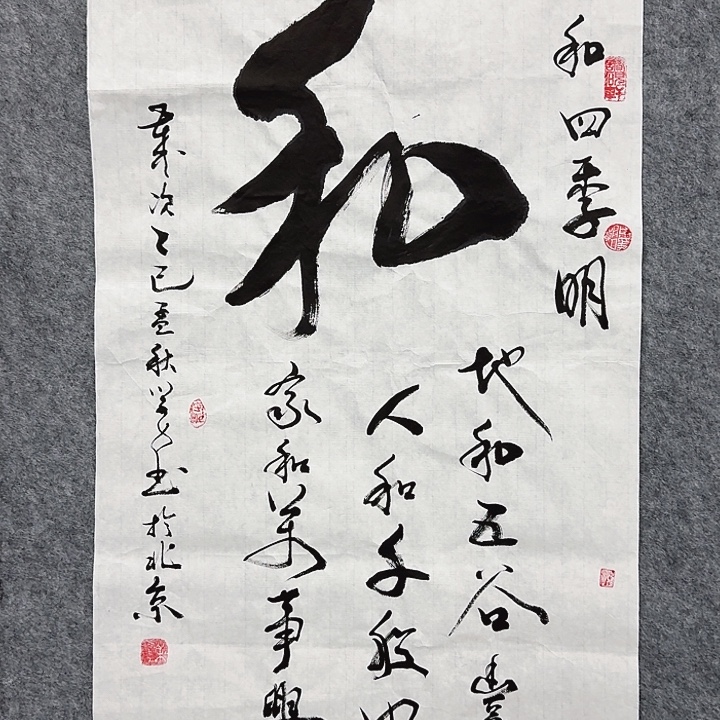 和
和四季明
地和五谷豐
人和千般
家和萬事興
歲次乙巳孟秋书於北京